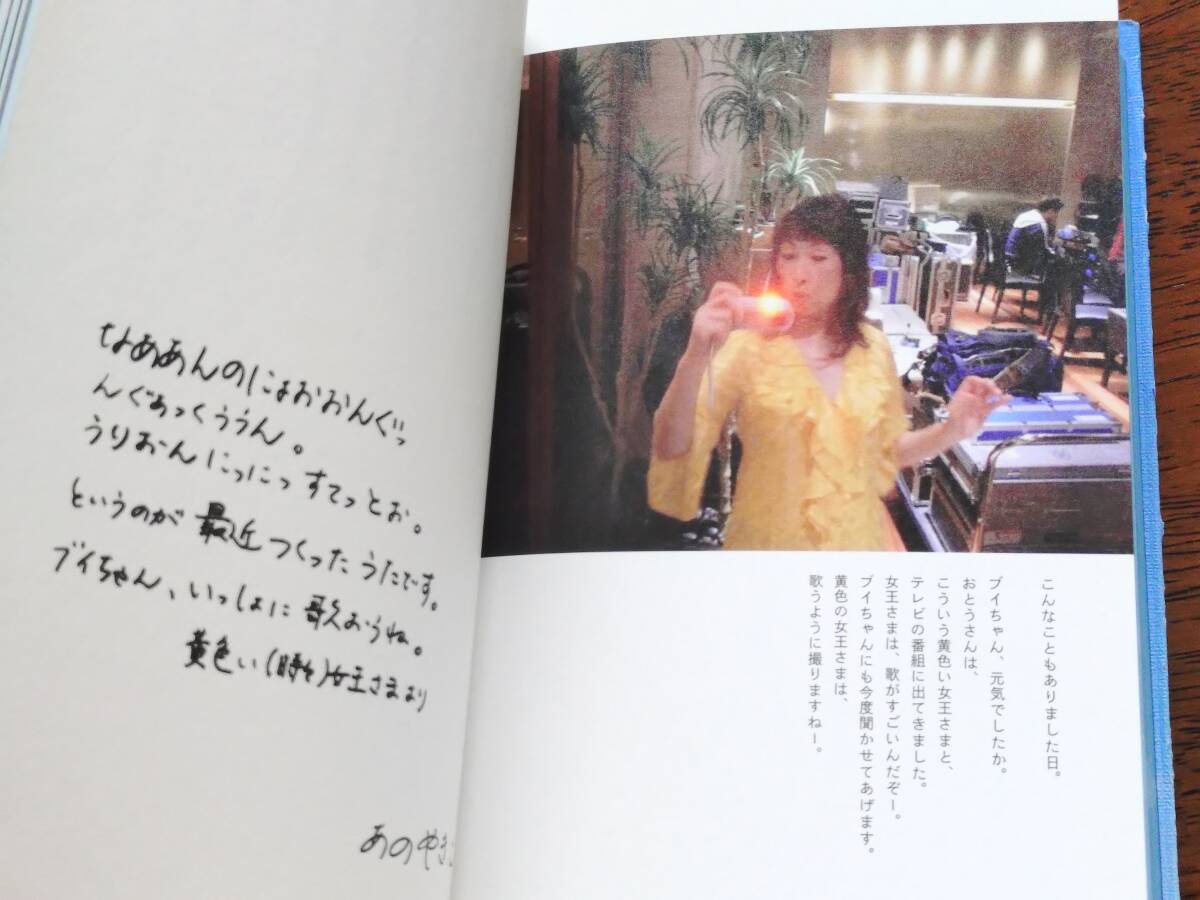 なああんのにょおおおんぐっ
んぐあっくううん。
うりおんにっにっすてっとお。
というのが最近つくったうたです。
ブイちゃん、いっしょに歌おうね。
黄色い(時々)女王さまより
あのやき
こんなこともありました日。
ブイちゃん、元気でしたか。
おとうさんは、
こういう黄色い女王さまと、
テレビの番組に出てきました。
女王さまは、歌がすごいんだぞー。
ブイちゃんにも今度聞かせてあげます。
黄色の女王さまは、
歌うように撮りますねー。